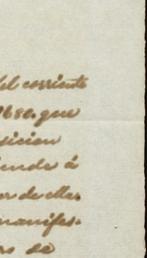 del corriente
1680, que
sicion
iende á
or de ellas
manifes-
ro de